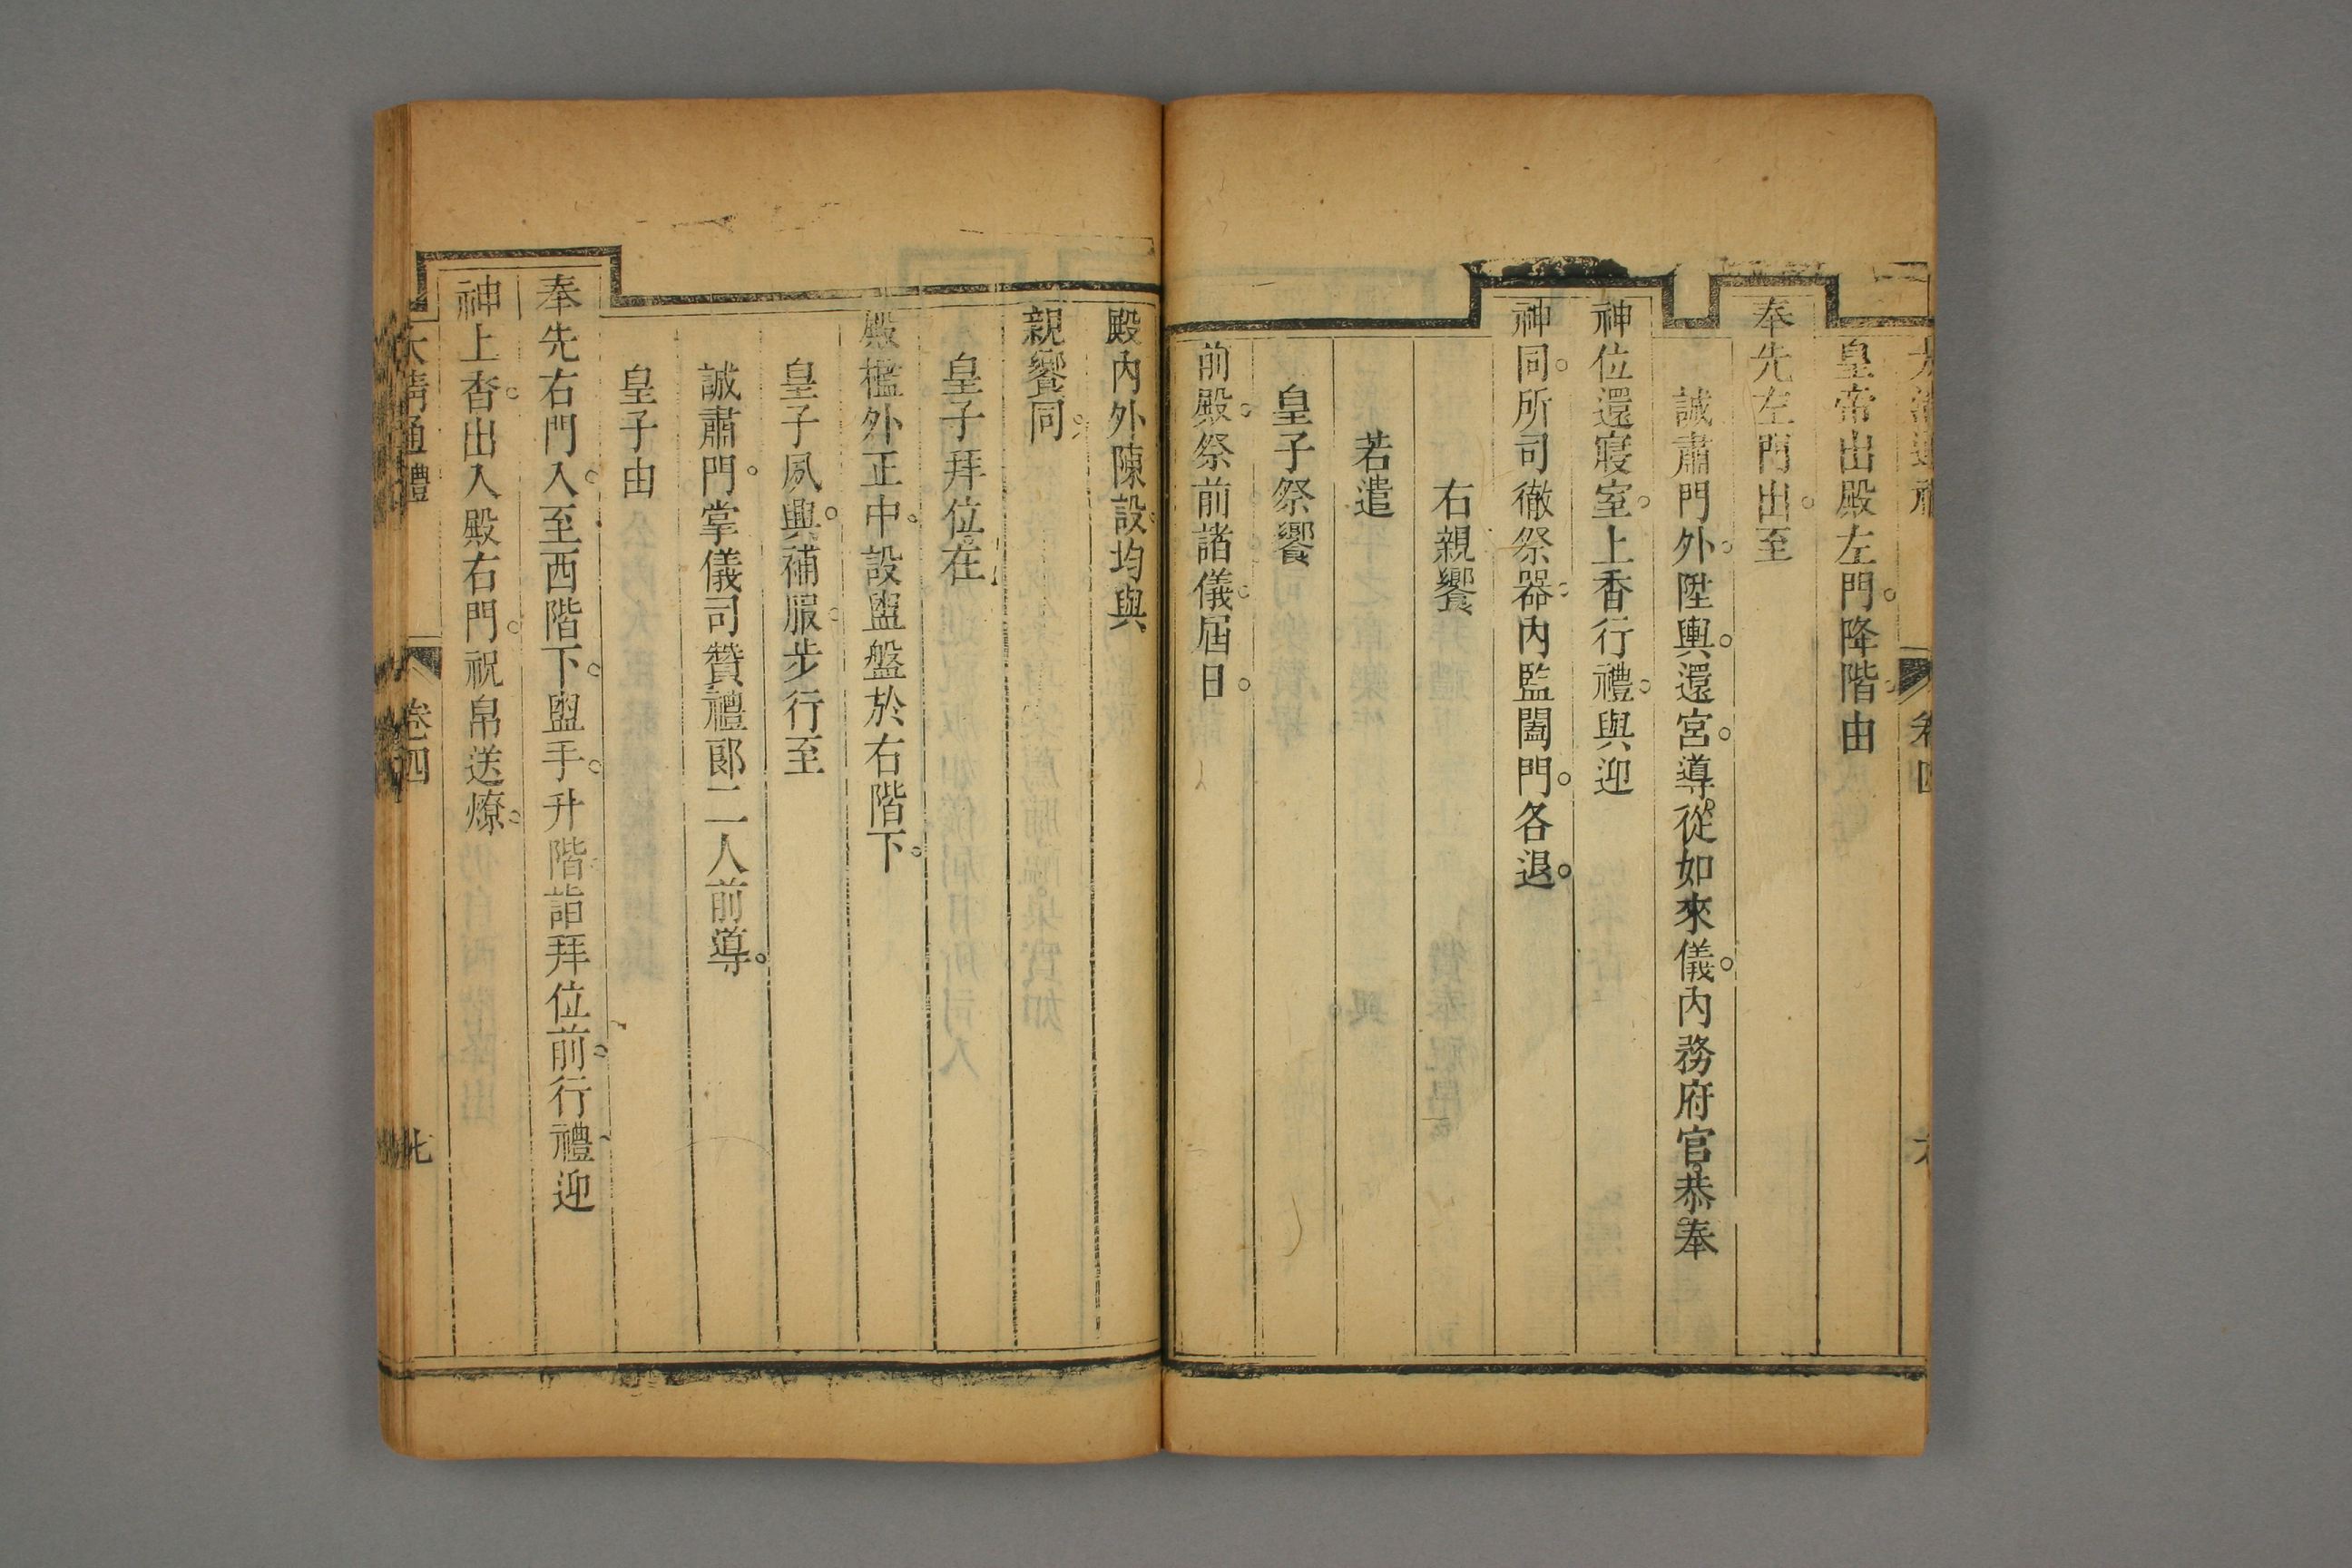 皇帝出殿左門。降階。由
奉先左門出。至
誠肅門外。陞輿。還宮。導從如來儀。內務府官恭奉
神位還寢室。上香行禮。與迎
神同。所司徹祭器。內監闔門。各退。
右親饗
若遣
皇子祭饗
前殿。祭前諸儀。屆日。
殿內外陳設。均與
親饗同。
皇子拜位。在
殿檻外正中。設盥盤於右階下。
皇子夙興。補服。步行至
誠肅門。掌儀司贊禮郎二人前導。
皇子由
奉先右門入。至西階下。盥手。升階。詣拜位前。行禮。迎
神上香。出入殿右門。祝帛送燎。
大清通禮 卷四 七